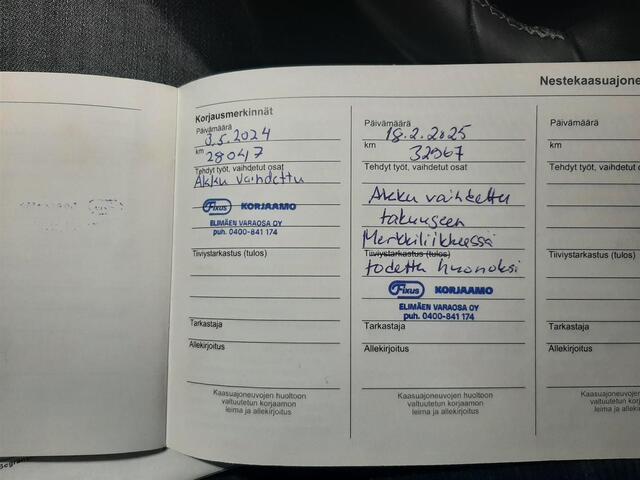 Nestekaasuajone
Korjausmerkinnät
Päivämäärä
3.5.2024
km
28047
Tehdyt työt, vaihdetut osat
Akku vaihdettu
Fixus KORJAAMO
ELIMÄEN VARAOSA OY
puh. 0400-841 174
Tiiviystarkastus (tulos)
Tarkastaja
Allekirjoitus
Kaasuajoneuvojen huoltoon
valtuutetun korjaamon
leima ja allekirjoitus
Päivämäärä
18.2.2025
km
32967
Tehdyt työt, vaihdetut osat
Akku vaihdettu
takuuseen
Merkkiliikkeessä
Tiiviystarkastus (tulos)
todettu huonoksi
Fixus KORJAAMO
ELIMÄEN VARAOSA OY
puh. 0400-841 174
Tarkastaja
Allekirjoitus
Kaasuajoneuvojen huoltoon
valtuutetun korjaamon
leima ja allekirjoitus
Päivämäärä
km
Tehdyt työt, va
Tiiviystarkastus
Tarkastaja
Allekirjoitus
Kaasua
valtu
leim